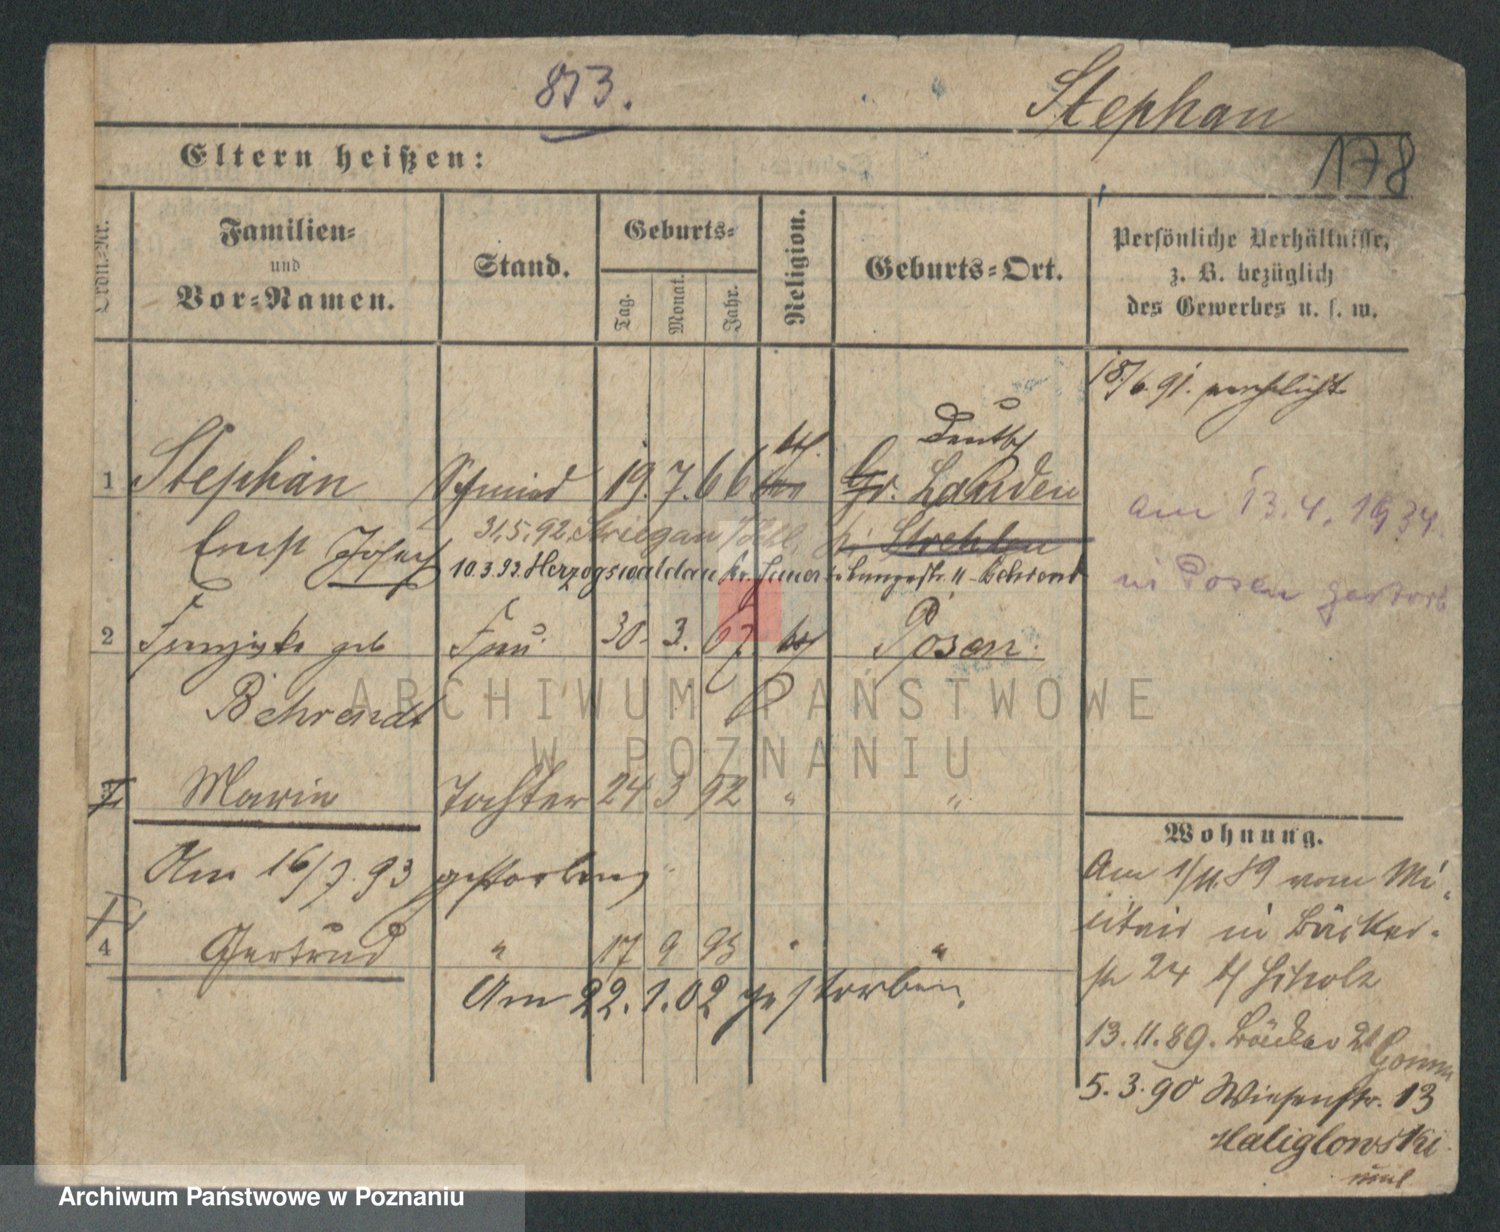 853.
Stephan
178
Eltern heißen:
Ordn.-Nr.
Familien-
und
Vor-Namen.
Stand.
Geburts-
Tag.
Monat.
Jahr.
Religion.
Geburts-Ort.
Persönliche Verhältnisse,
z. B. bezüglich
des Gewerbes u. s. w.
18/6.91. verehelicht
Deutsch
1 Stephan Schmied 19. 7. 66 Gr. Lauden
Ernst Josef
31.5.92. Striegau
Strehlen
10.3.93. Herzogswaldau Kr. Behrendt
am 13.4.1934
in Posen gestorb
2 geb Frau 30. 3. 67 Posen.
Behrendt
3 Marie Tochter 24 3 92 " "
Am 16/7.93 gestorben
4 Gertrud " 17 9 93 " "
Am 22.1.02 gestorben.
Wohnung.
Am 1/11.89 vom Mi-
litair in Bäcker-
str 24 b/ Scholz
13.11.89. Bäcker 21
5.3.90 Wiesenstr. 13
Haliglowski
ARCHIWUM PAŃSTWOWE
W POZNANIU
Archiwum Państwowe w Poznaniu